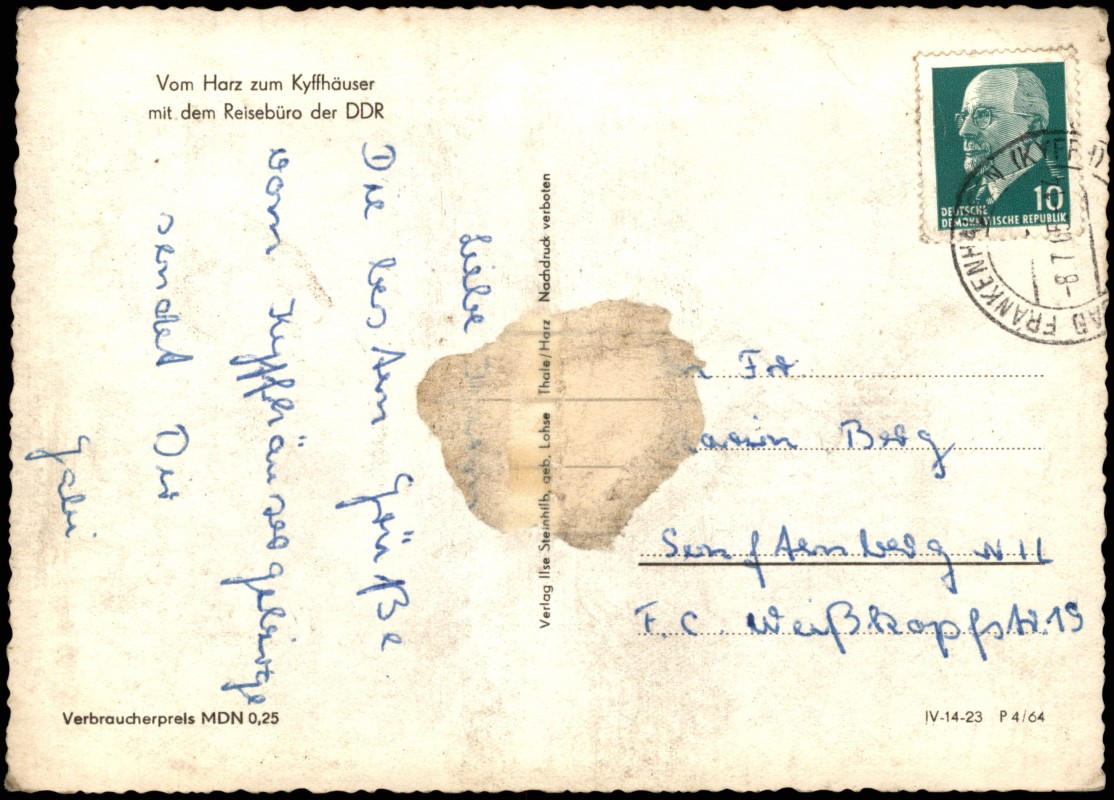 Vom Harz zum Kyffhäuser
mit dem Reisebüro der DDR
Liebe
Die besten Grüße
vom Kyffhäusergebirge
sendet Dir
Gabi
Verbraucherpreis MDN 0,25
Verlag Ilse Steinhilb, geb. Lohse Thale/Harz Nachdruck verboten
10
DEUTSCHE
DEMOKRATISCHE REPUBLIK
BAD FRANKENHAUSEN (KYFFH)
-8.7.65
Berg
Senftenberg N II
F. C. Weißkopfstr. 19
IV-14-23 P 4/64